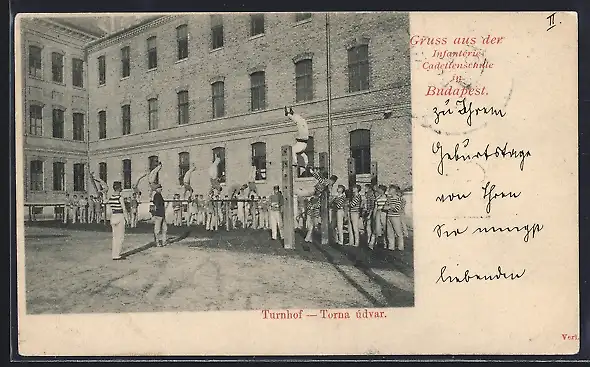 II.
Gruss aus der
Infanterie-
Cadettenschule
in
Budapest.
zu Ihrem
Geburtstage
von Ihren
Sie innigst
liebenden
Turnhof — Torna údvar.
Verl.